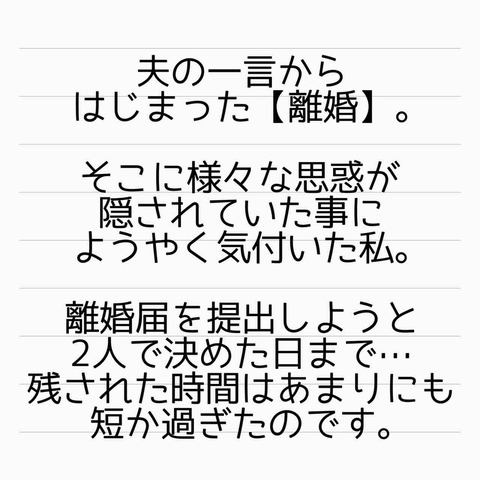 夫の一言から
はじまった【離婚】。
そこに様々な思惑が
隠されていた事に
ようやく気付いた私。
離婚届を提出しようと
2人で決めた日まで…
残された時間はあまりにも
短か過ぎたのです。